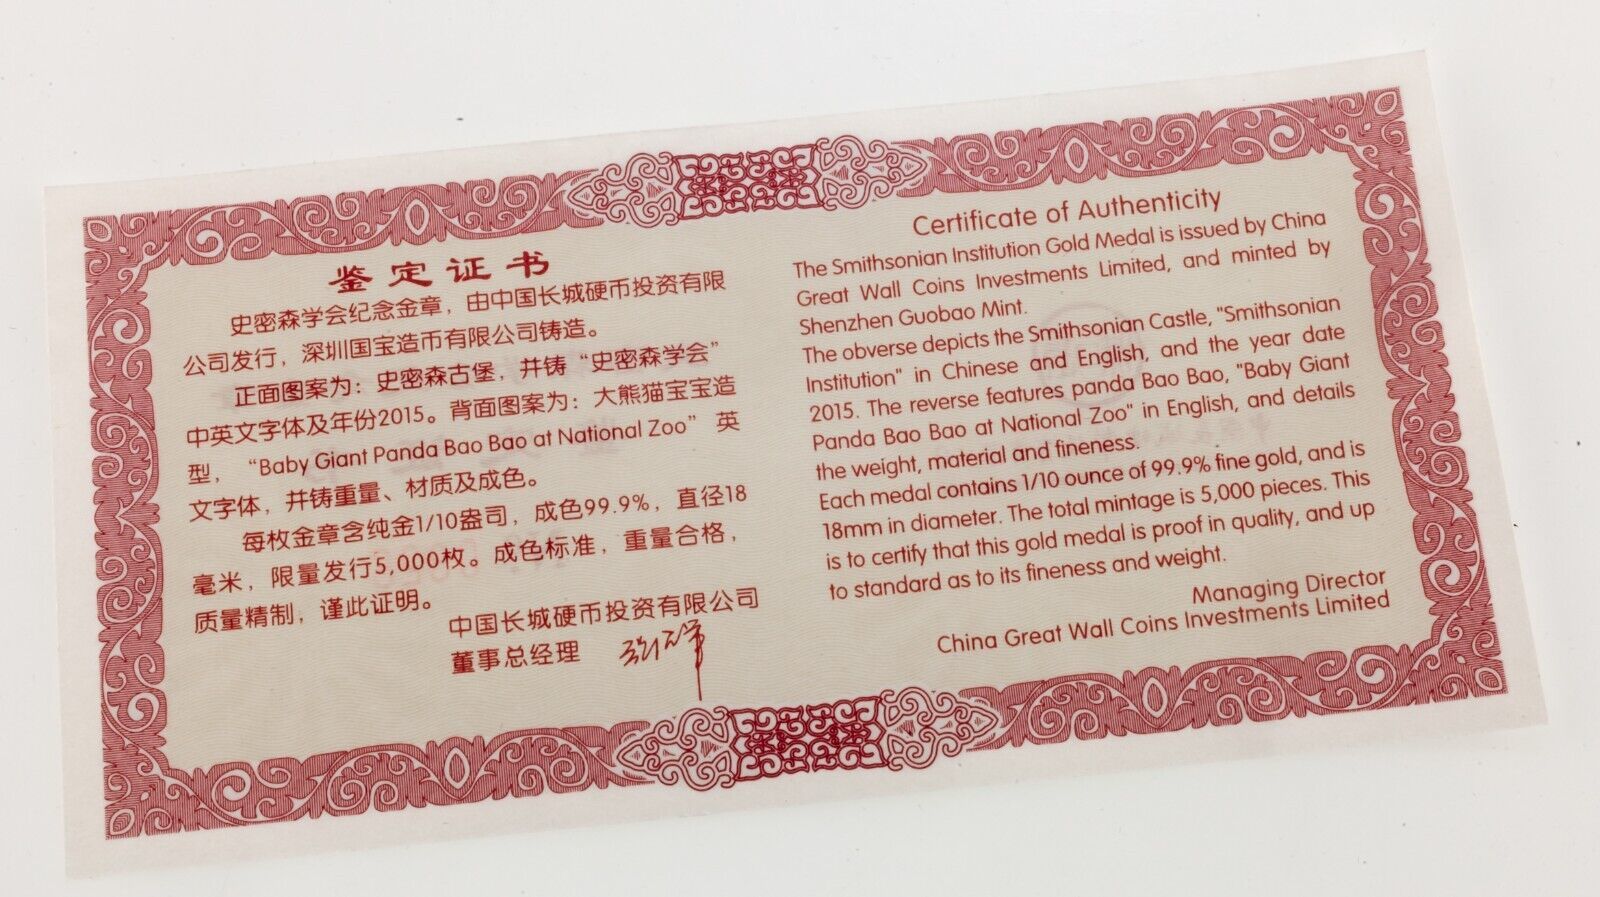 鉴定证书
史密森学会纪念金章，由中国长城硬币投资有限
公司发行，深圳国宝造币有限公司铸造。
正面图案为：史密森古堡，并铸“史密森学会”
中英文字体及年份2015。背面图案为：大熊猫宝宝造
型，“Baby Giant Panda Bao Bao at National Zoo”英
文字体，并铸重量、材质及成色。
每枚金章含纯金1/10盎司，成色99.9%，直径18
毫米，限量发行5,000枚。成色标准，重量合格，
质量精制，谨此证明。
中国长城硬币投资有限公司
董事总经理
Certificate of Authenticity
The Smithsonian Institution Gold Medal is issued by China
Great Wall Coins Investments Limited, and minted by
Shenzhen Guobao Mint.
The obverse depicts the Smithsonian Castle, "Smithsonian
Institution" in Chinese and English, and the year date
2015. The reverse features panda Bao Bao, "Baby Giant
Panda Bao Bao at National Zoo" in English, and details
the weight, material and fineness.
Each medal contains 1/10 ounce of 99.9% fine gold, and is
18mm in diameter. The total mintage is 5,000 pieces. This
is to certify that this gold medal is proof in quality, and up
to standard as to its fineness and weight.
Managing Director
China Great Wall Coins Investments Limited